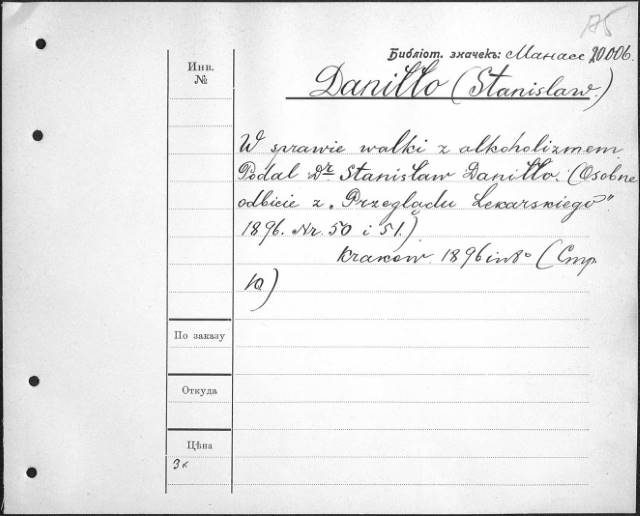 А5
Библіот. значекъ: Манасс 20006.
Инв.
№
Daniłło (Stanisław.)
W sprawie walki z alkoholizmem
Podał Dr Stanisław Daniłło. (Osobne
odbicie z „Przeglądu Lekarskiego"
1896. Nr. 50 i 51.)
Kraków. 1896 in 8° (Стр.
10)
По заказу
Откуда
Цѣна
3 к